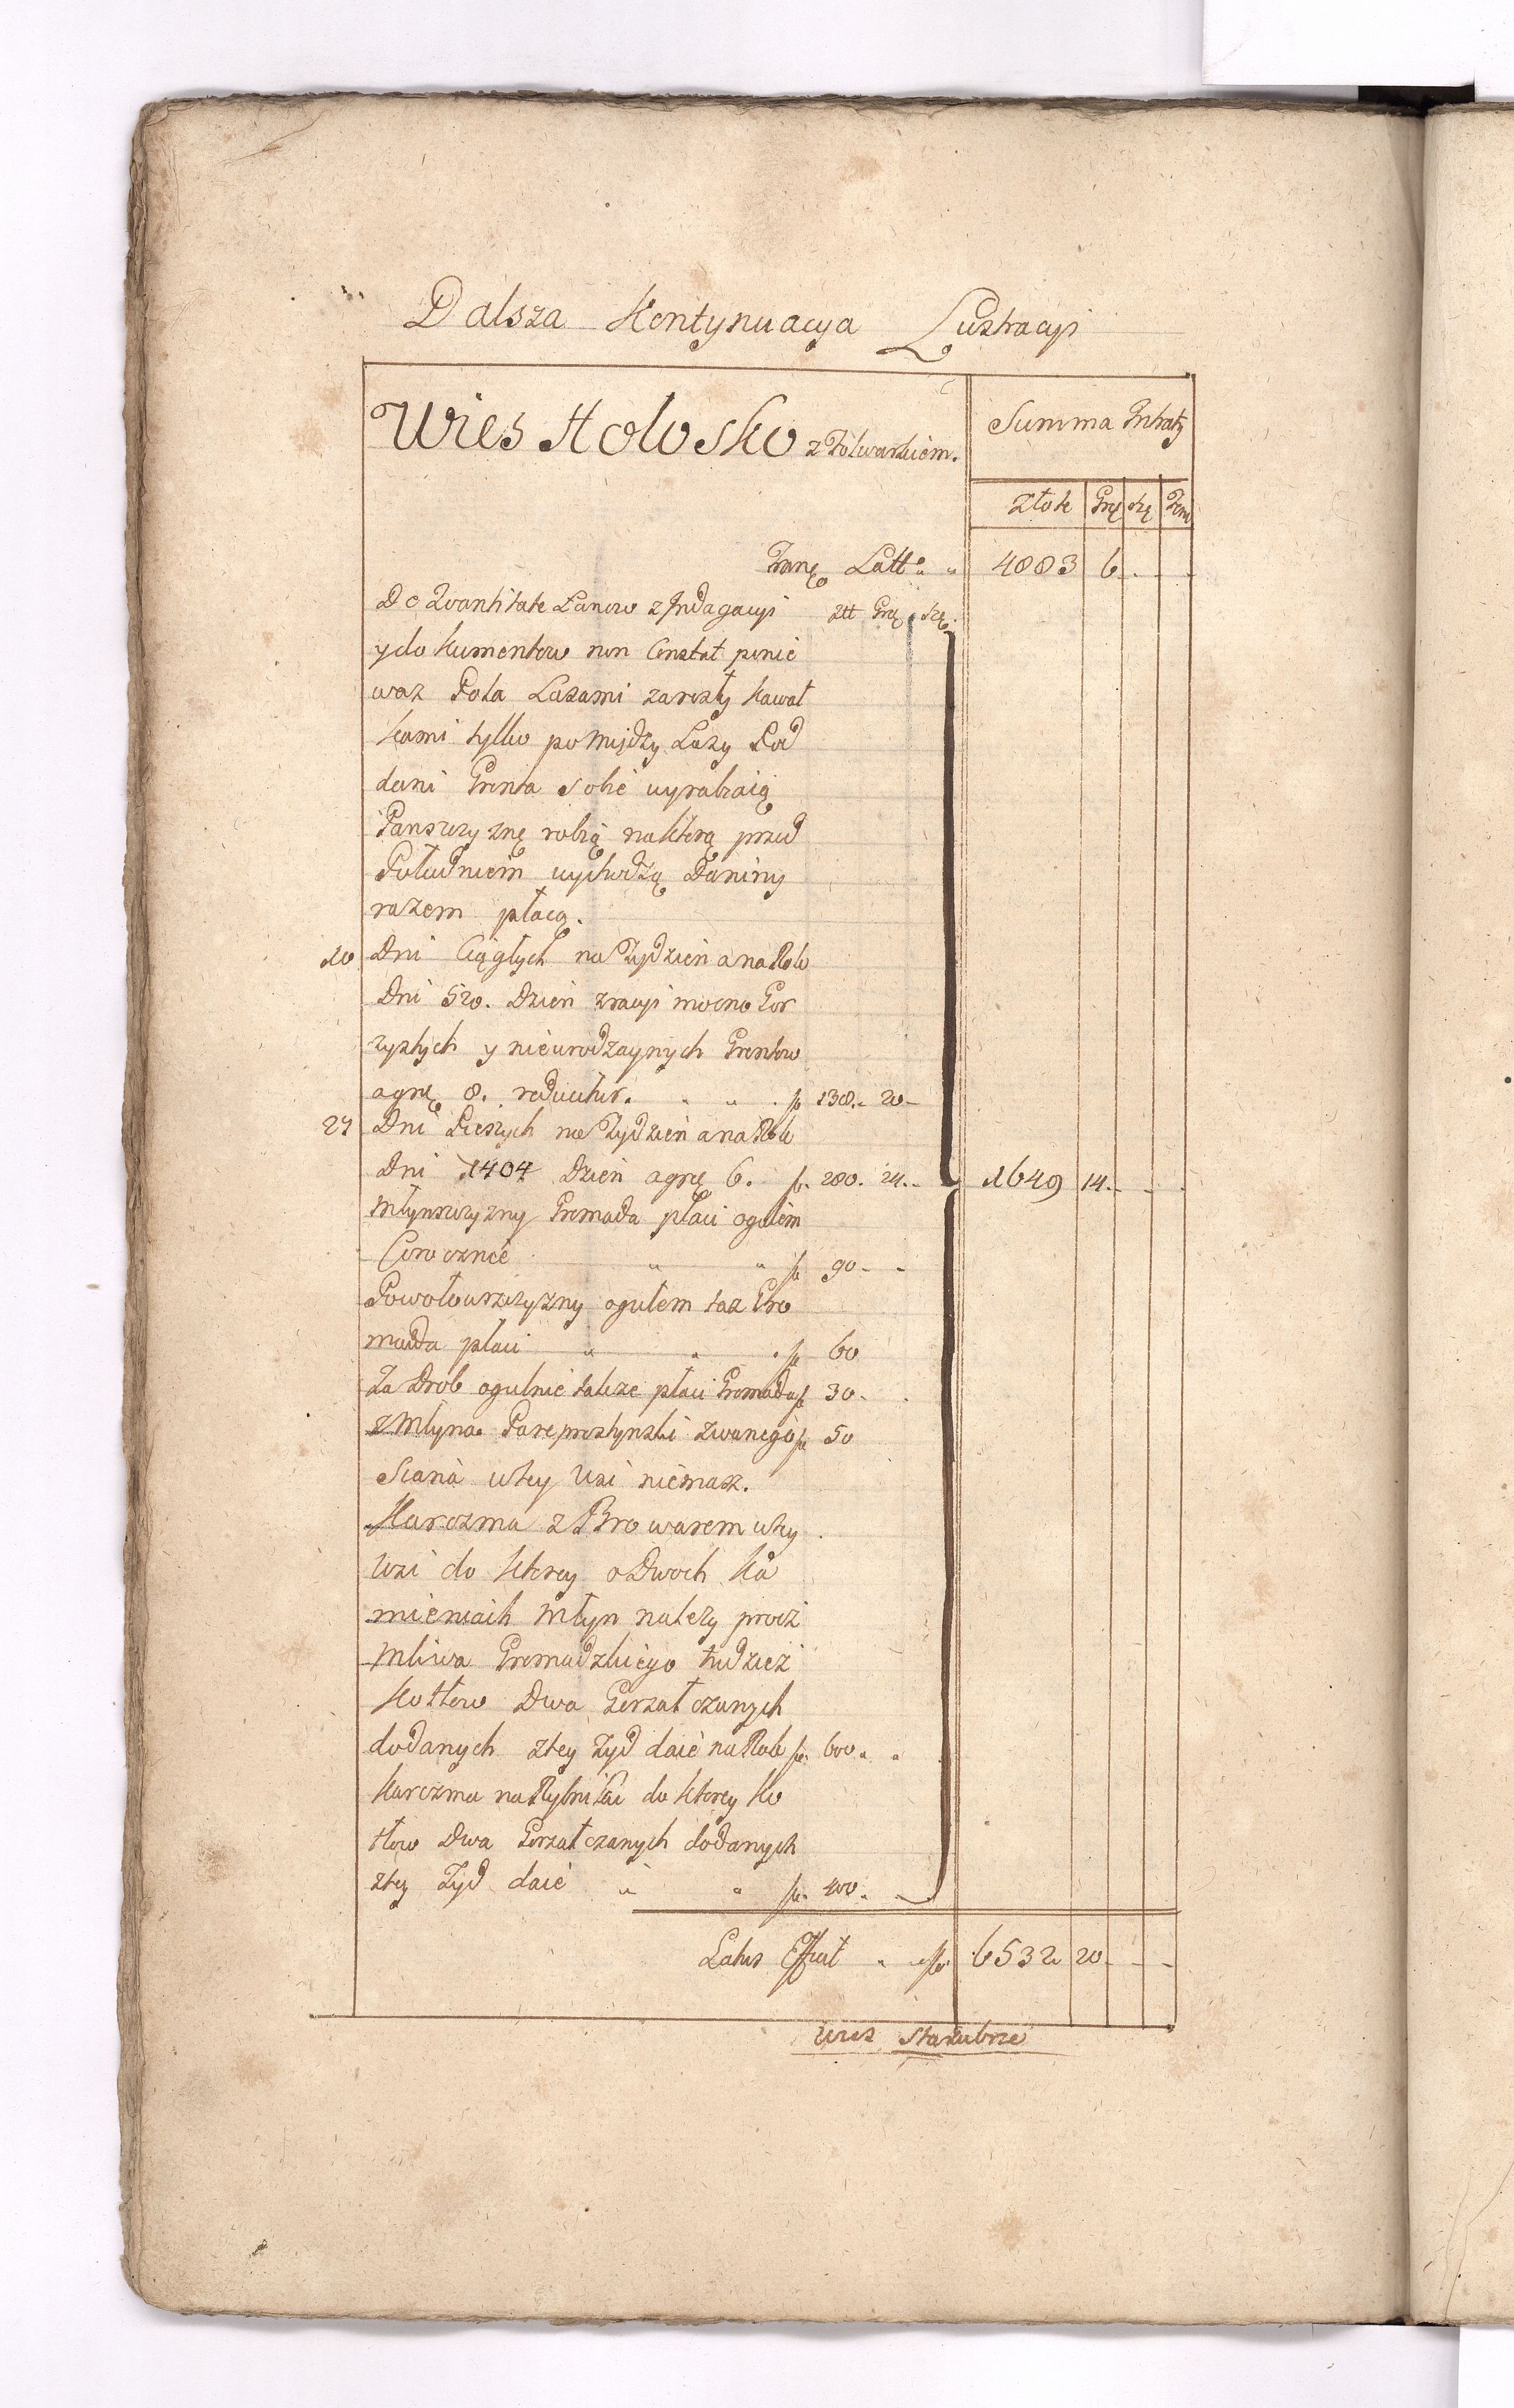 Dalsza Kontynuacya Lustracyi
Wies Holosko z Folwarkiem.
Summa Intraty
Złote Grẹ Szẹ
Latt 4883 6
De Quantitate Łanow z Jndagacyi ztt Grẹ Szẹ
y dokumentow non Constat ponie
waz Pola Lasami zarosły kawał
kami tylko pomiędzy Lasy Pod
dani Gronta sobie wyrabiaią
Panszczyznę robią na ktorą przed
Południem wychodzą Daniny
razem płacą.
10 Dni Ciągłych na Tydzien a na Rok
Dni 520. Dzien z racyi mocno Gor
zystych y nieurodzaynych Grontow
a grẹ 8. reducitur. f 138. 20
27 Dni Pieszych na Tydzien a na Rok
Dni 1404 Dzien a grẹ 6. f. 280. 24. 1649 14.
Młynszczyzny Gromada płaci ogulem
Corocznie f 90
Powołowszczyzny ogulem taz Gro
mada płaci f 60
Za Drob ogulnie takze płaci Gromada f 30
z Młyna zwanego f 50
Siana wtey Wsi niemasz.
Karczma z Browarem wtey
Wsi do ktorey o Dwoch Ka
mieniach Młyn nalezy procz
Mliwa Gromadzkiego tudziez
Kotłow Dwa Gorzałczanych
dodanych ztey Zyd daie na Rok f. 600
Karczma na do ktorey Ko
tłow Dwa Gorzałczanych dodanych
ztey Zyd daie f. 400
Latus Efficit f 6532 20
Wies